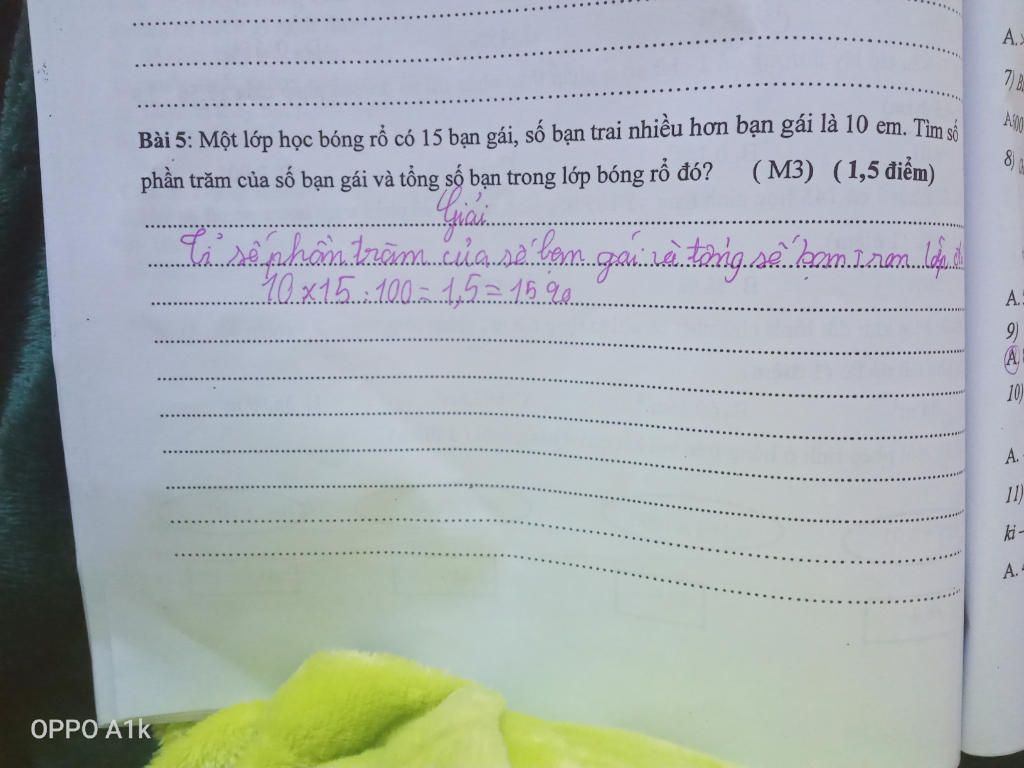 Bài 5: Một lớp học bóng rổ có 15 bạn gái, số bạn trai nhiều hơn bạn gái là 10 em. Tìm số
phần trăm của số bạn gái và tổng số bạn trong lớp bóng rổ đó? ( M3) ( 1,5 điểm)
Giải
Tỉ số phần trăm của số bạn gái và tổng số bạn tron lớp
10 x 15 : 100 = 1,5 = 15 %
A.
7) B
A
8)
A.
9)
A
10)
A.
11)
ki
A.
OPPO A1k